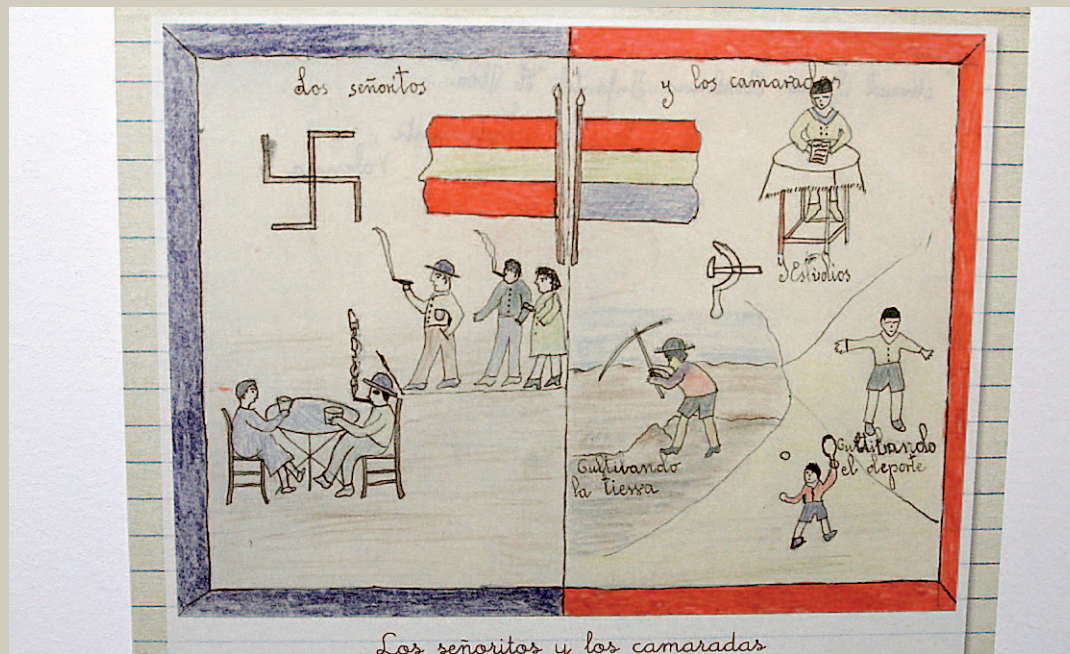 Los señoritos
y los camaradas
y Estudios
Cultibando
la tierra
Cultibando
el deporte
Los señoritos y los camaradas